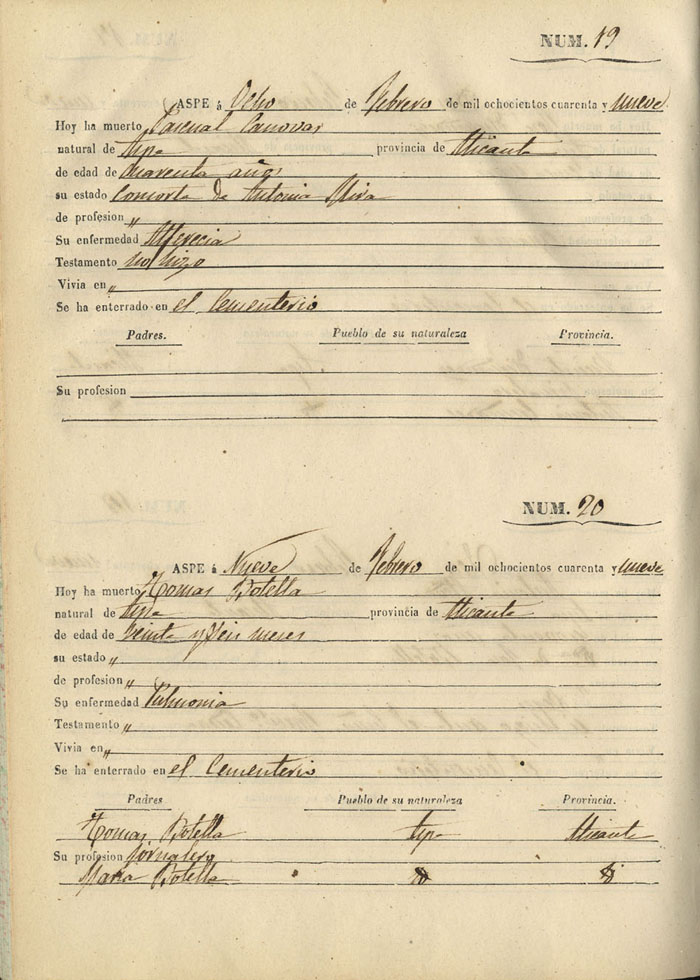 NUM. 19
ASPE á Ocho de Febrero de mil ochocientos cuarenta y nueve
Hoy ha muerto Pascual Canovas
natural de Aspe provincia de Alicante
de edad de cuarenta años
su estado Consorte de Antonia Mira
de profesion "
Su enfermedad Alferecia
Testamento no hizo
Vivia en "
Se ha enterrado en el Cementerio
Padres. Pueblo de su naturaleza Provincia.
Su profesion
NUM. 20
ASPE á Nueve de Febrero de mil ochocientos cuarenta y nueve
Hoy ha muerto Tomas Botella
natural de Aspe provincia de Alicante
de edad de veinte y seis meses
su estado "
de profesion "
Su enfermedad Pulmonia
Testamento "
Vivia en "
Se ha enterrado en el Cementerio
Padres Pueblo de su naturaleza Provincia.
Tomas Botella Aspe Alicante
Su profesion Jornalero
Maria Botella